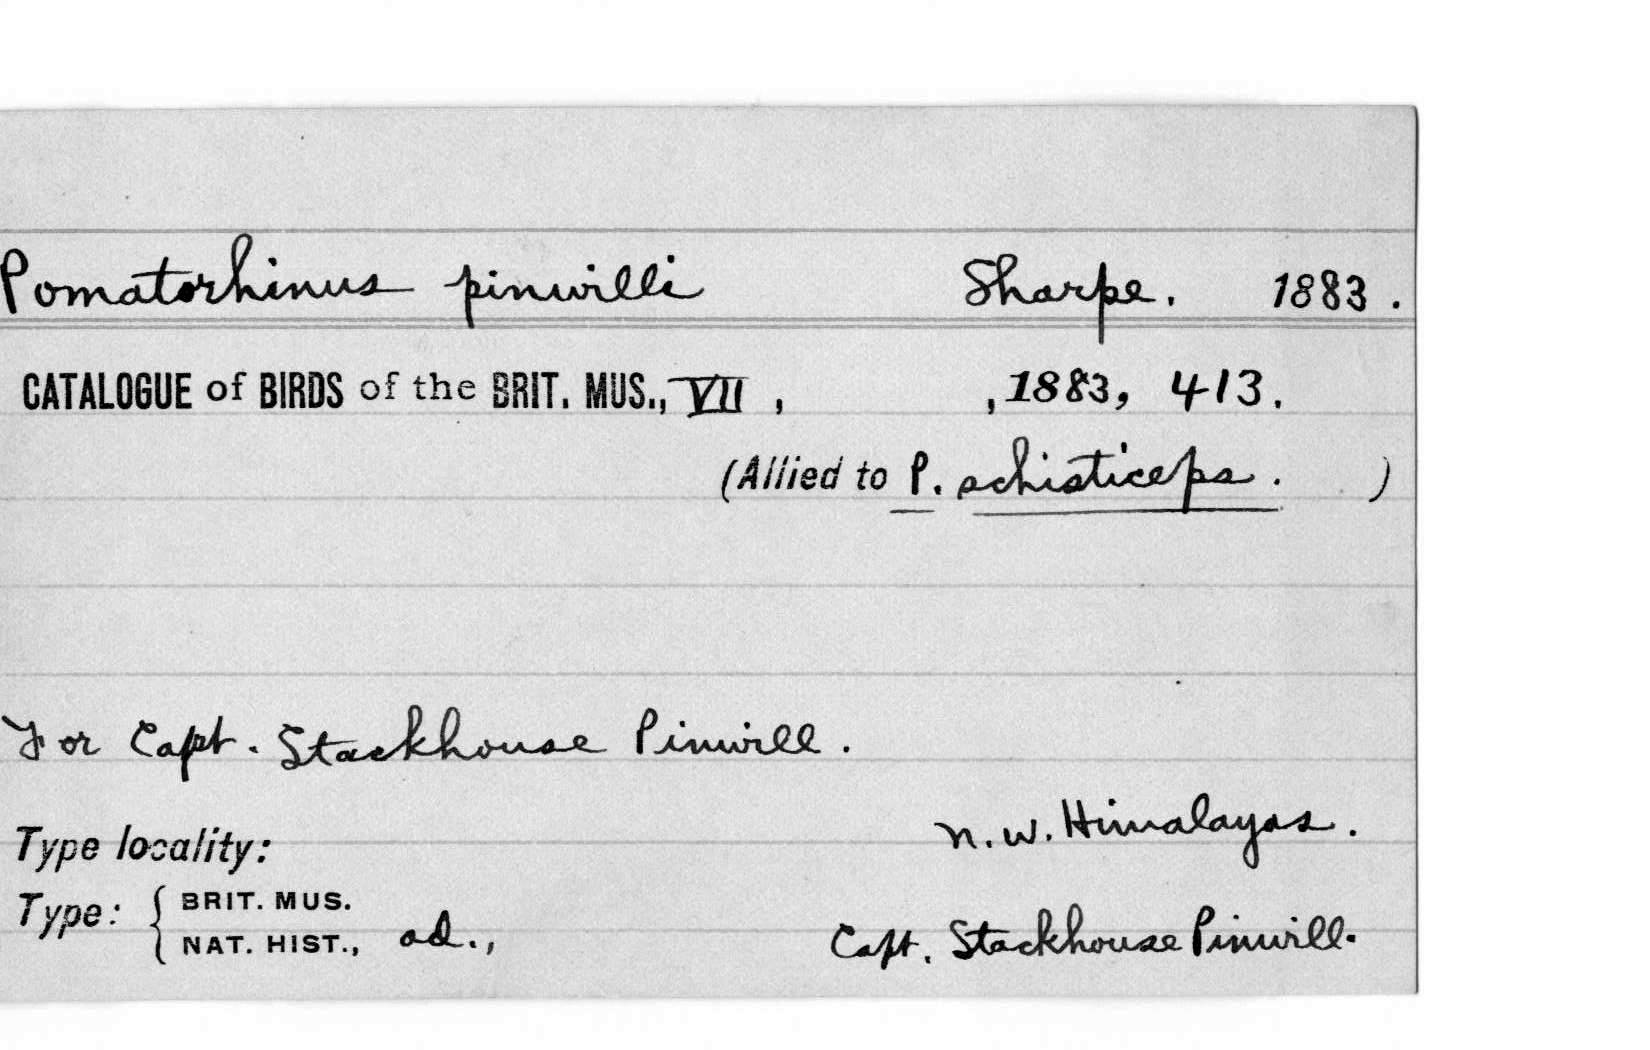 Pomatorhinus pinwilli Sharpe. 1883.
CATALOGUE of BIRDS of the BRIT. MUS., VII , , 1883, 413.
(Allied to P. schisticeps. )
For Capt. Stackhouse Pinwill.
Type locality: N.W. Himalayas.
Type: { BRIT. MUS.
NAT. HIST., ad., Capt. Stackhouse Pinwill.